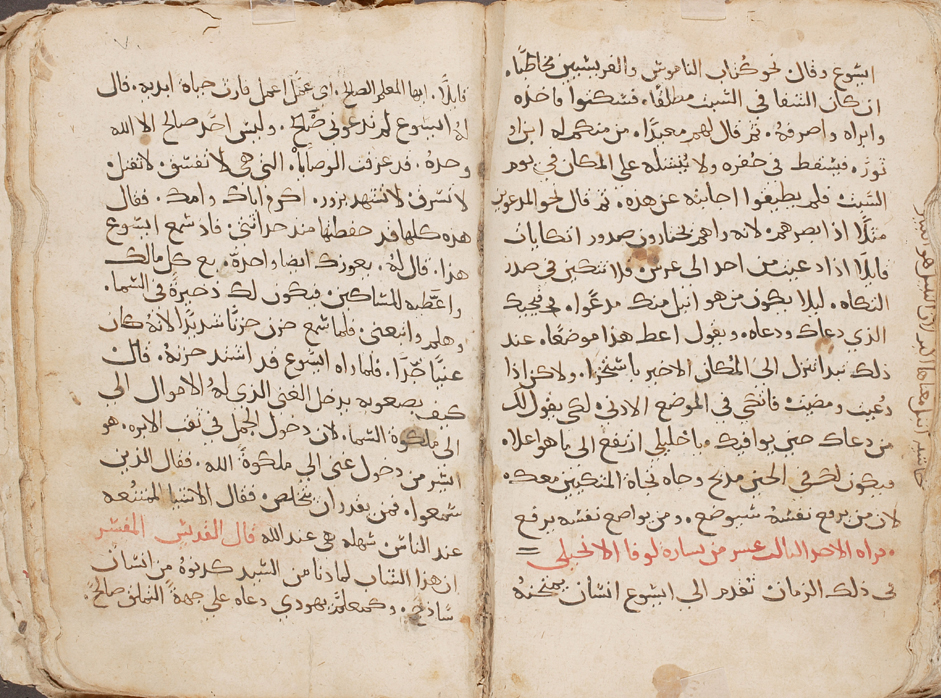 ايشوع وقال نحو كتاب الناموس والفريسيين مخاطبًا.
ان كان الشفا في السبت مطلقًا. فسكتوا فاخذه
وابراه واصرفهُ. ثم قال لهم معيدًا. من منكم له ابن او
ثور. فيسقط في حفره ولا ينشله علي المكان في يوم
السبت فلم يطيقوا اجابته عن هذه. ثم قال نحو المدعوين
مثلًا اذ ابصرهم. لانه راهم يختارون صدور اتكايات
قايلًا اذا دعيت من احد الي عرس. فلا تتكين في صدر
التكاه. ليلا يكون من هو انبل منك مدعوًا. فيجيك
الذي دعاك ودعاه. ويقول اعط هذا موضعًا. عند
ذلك تبدا تنزل الى المكان الاخير باستخزا. ولاكن اذا
دُعيت ومضيت فاتكي في الموضع الادنى لكي يقول لك
من دعاك حين يوافيك. يا خليلي ارتفع الى ما هو اعلا.
فيكون لك في الحين مديح وجاه تجاة المتكيين معك.
لان من يرفع نفسهُ سيوضع. ومن يواضع نفسه يرفع
قراه الاحد الثالث عشر من بشارة لوقا الانجيلي
في ذلك الزمان تقدم الى ايشوع انسان يمتحنهُ
قايلًا. ايها المعلم الصالح. اي عمل اعمل فارث حياة ابديه. قال
لهُ ايشوع لم تدعوني صالح. وليس احد صالح الا الله
وحدهُ. قد عرفت الوصايا. التي هي لا تفسق. لا تقتل
لا تسرق لا تشهد بزور. اكرم اباك وامك. فقال
هذه كلها قد حفظتها منذ حداثتي. فاذ سمع ايشوع
هذا. قال لهُ. يعوزك ايضا واحدة. بع كل مالك
واعطيه للمساكين. فيكون لك ذخيرةً في السما.
وهلم واتبعني. فلما سمع حزن حزنًا شديدًا لانهُ كان
غنيًا جدًا. فلما راه ايشوع قد اشتد حزنهُ. قال
كيف بصعوبه يدخل الغني الذي لهُ الاموال الي
الى ملكوة السما. لان دخول الجمل في ثقب الابره. هو
ايسر من دخول غني الي ملكوة الله. فقال الذين
سمعوا. فمن يقدر ان يخلص. فقال الاشيا الممتنعه
عند الناس سهله هي عند الله قال القديس المفسر
ان هذا الشاب لما دنا من السيد كدنوة من انسان
ساذج. وكمعلم يهودي دعاه علي جهة التملق صالحً.